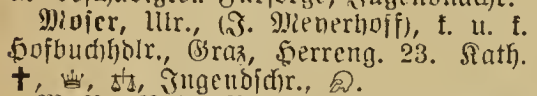 Moser, Ulr., (J. Meyerhoff), k. u. k.
Hofbuchhdlr., Graz, Herreng. 23. Kath.
✝, ♛, ⚖, Jugendschr.,